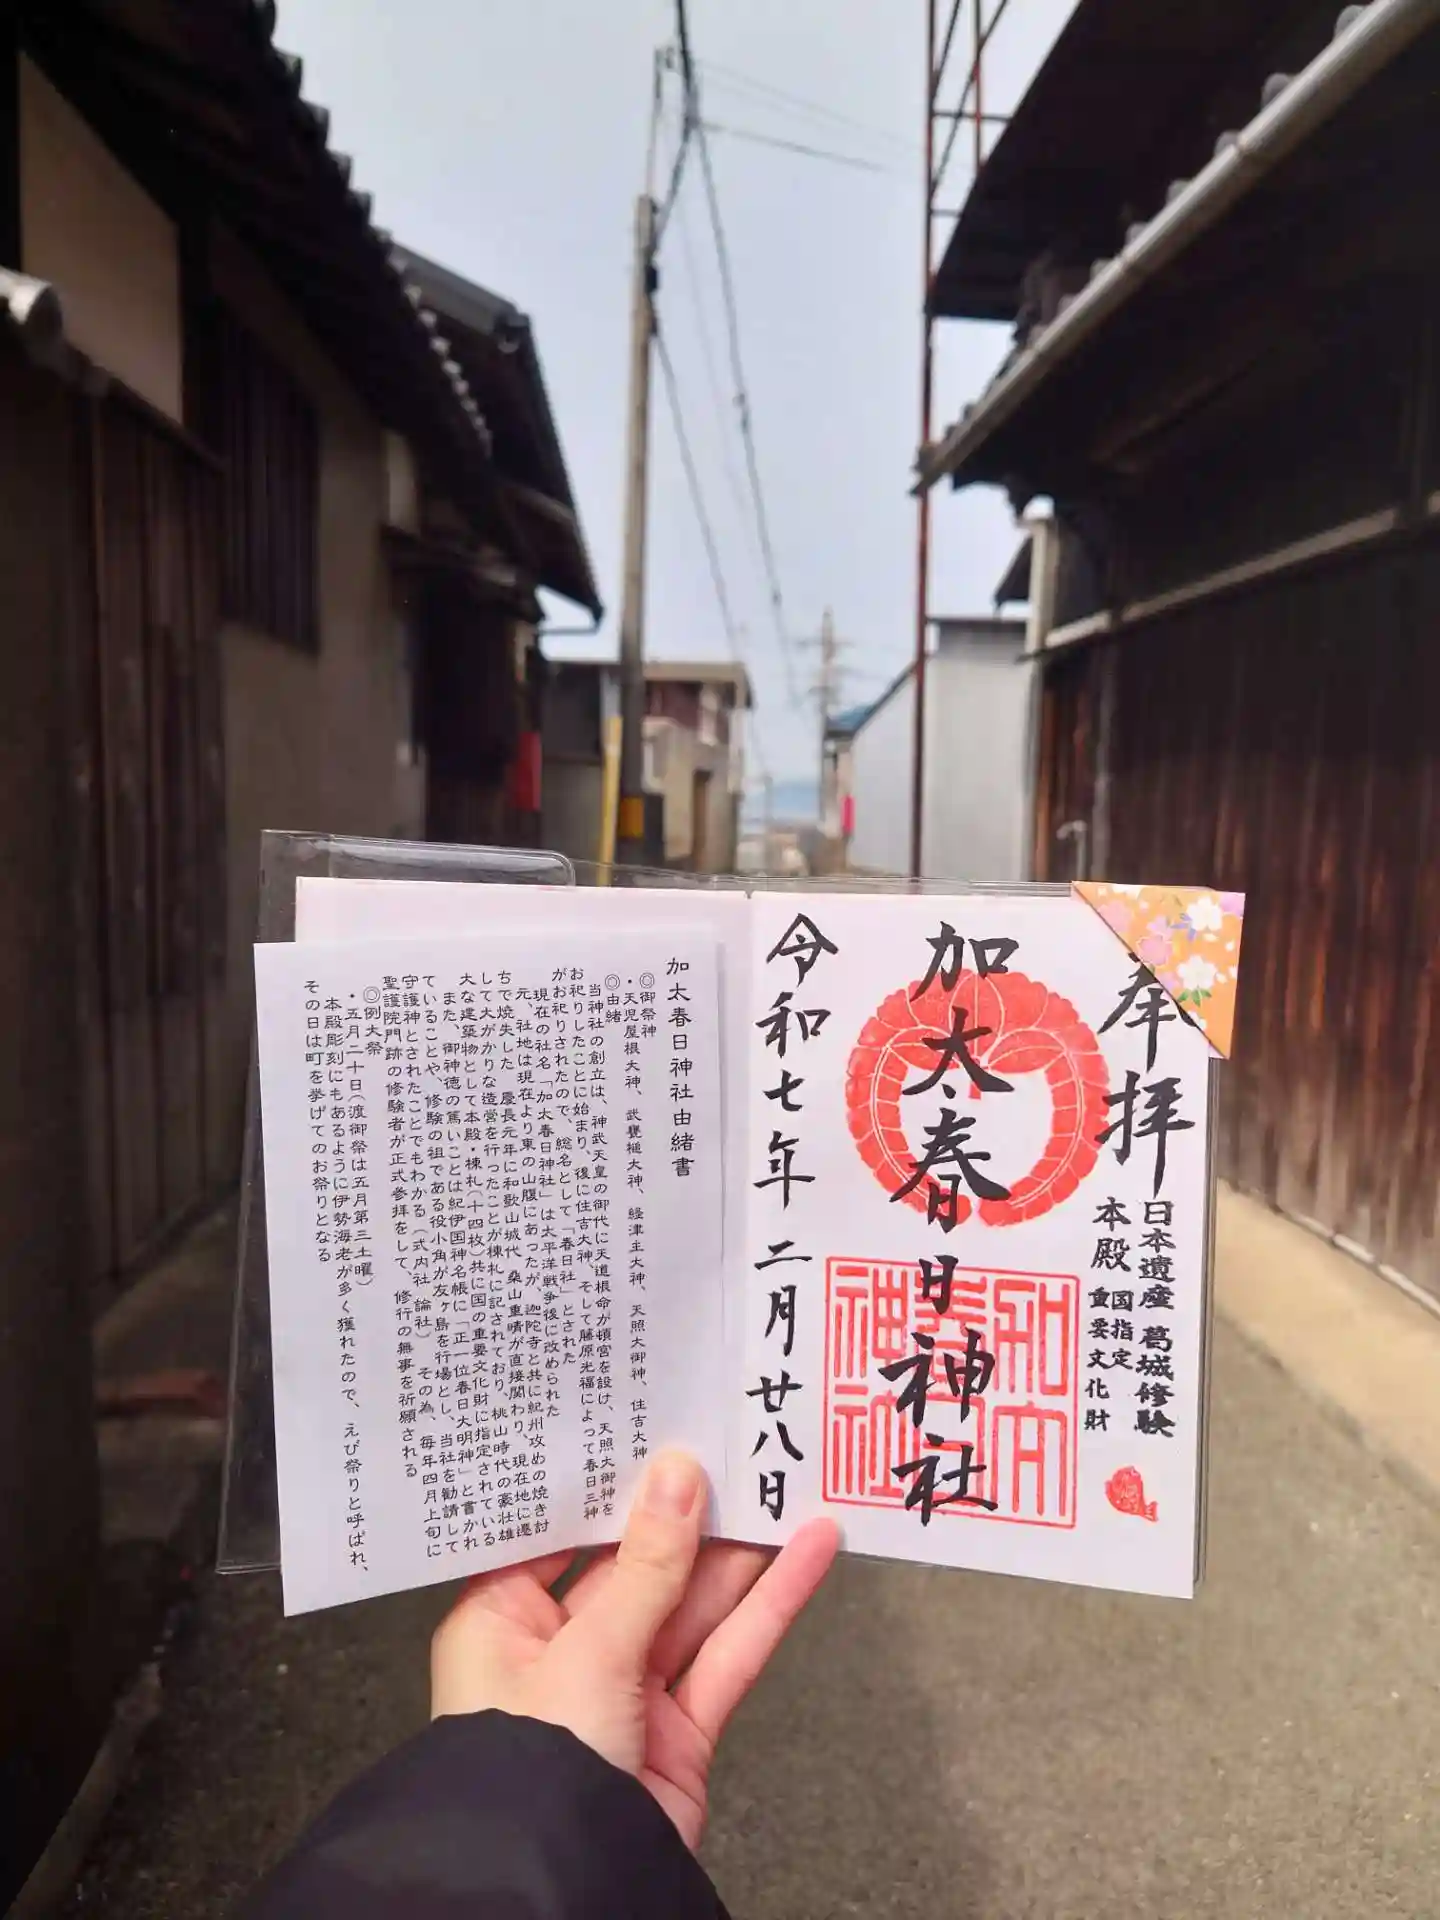 奉拝
日本遺産 葛城修験
本殿 国指定
重要文化財
加太春日神社
令和七年二月廿八日
加太春日神社由緒書
◎御祭神
・天児屋根大神、武甕槌大神、経津主大神、天照大御神、住吉大神
◎由緒
当神社の創立は、神武天皇の御代に天道根命が頓宮を設け、天照大御神を
お祀りしたことに始まり、後に住吉大神、そして藤原光福によって春日三神
がお祀りされたので、総名として「春日社」とされた
現在の社名「加太春日神社」は太平洋戦争後に改められた
元、社地は現在より東の山腹にあったが、迦陀寺と共に紀州攻めの焼き討
ちで焼失した 慶長元年に和歌山城代 桑山重晴が直接関わり、現在地に遷
して大がかりな造営を行ったことが棟札に記されており、桃山時代の豪壮雄
大な建築物として本殿・棟札(十四枚)共に国の重要文化財に指定されている
また、御神徳の篤いことは紀伊国神名帳に「正一位春日大明神」と書かれ
ていることや、修験の祖である役小角が友ヶ島を行場とし、当社を勧請して
守護神とされたことでもわかる(式内社 論社) その為、毎年四月上旬に
聖護院門跡の修験者が正式参拝をして、修行の無事を祈願される
◎例大祭
・五月二十日(渡御祭は五月第三土曜)
本殿彫刻にもあるように伊勢海老が多く獲れたので、えび祭りと呼ばれ、
その日は町を挙げてのお祭りとなる